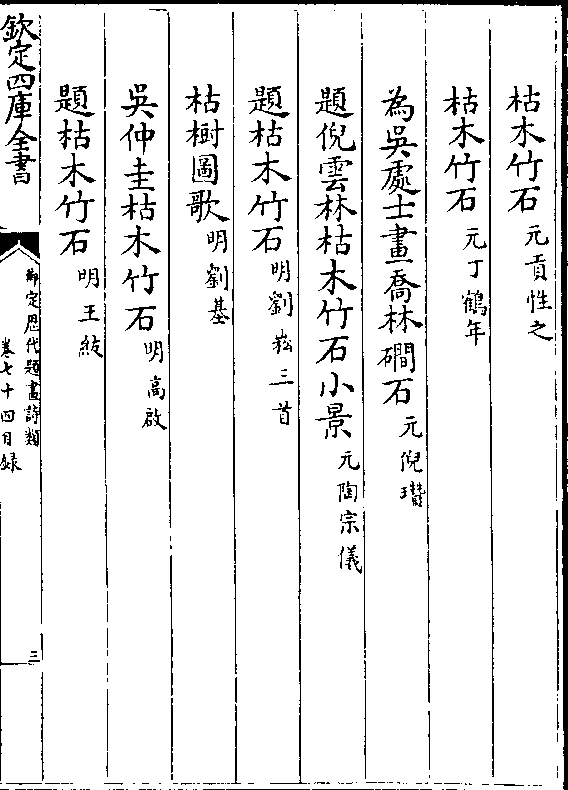 枯木竹石 元貢性之
枯木竹石 元丁鶴年
為吳處士畫喬林磵石 元倪瓚
題倪雲林枯木竹石小景 元陶宗儀
題枯木竹石 明劉崧三首
枯樹圖歌 明劉基
吳仲圭枯木竹石 明高啟
題枯木竹石 明王紱
欽定四庫全書
御定歴代題畫詩類
卷七十四目録
三